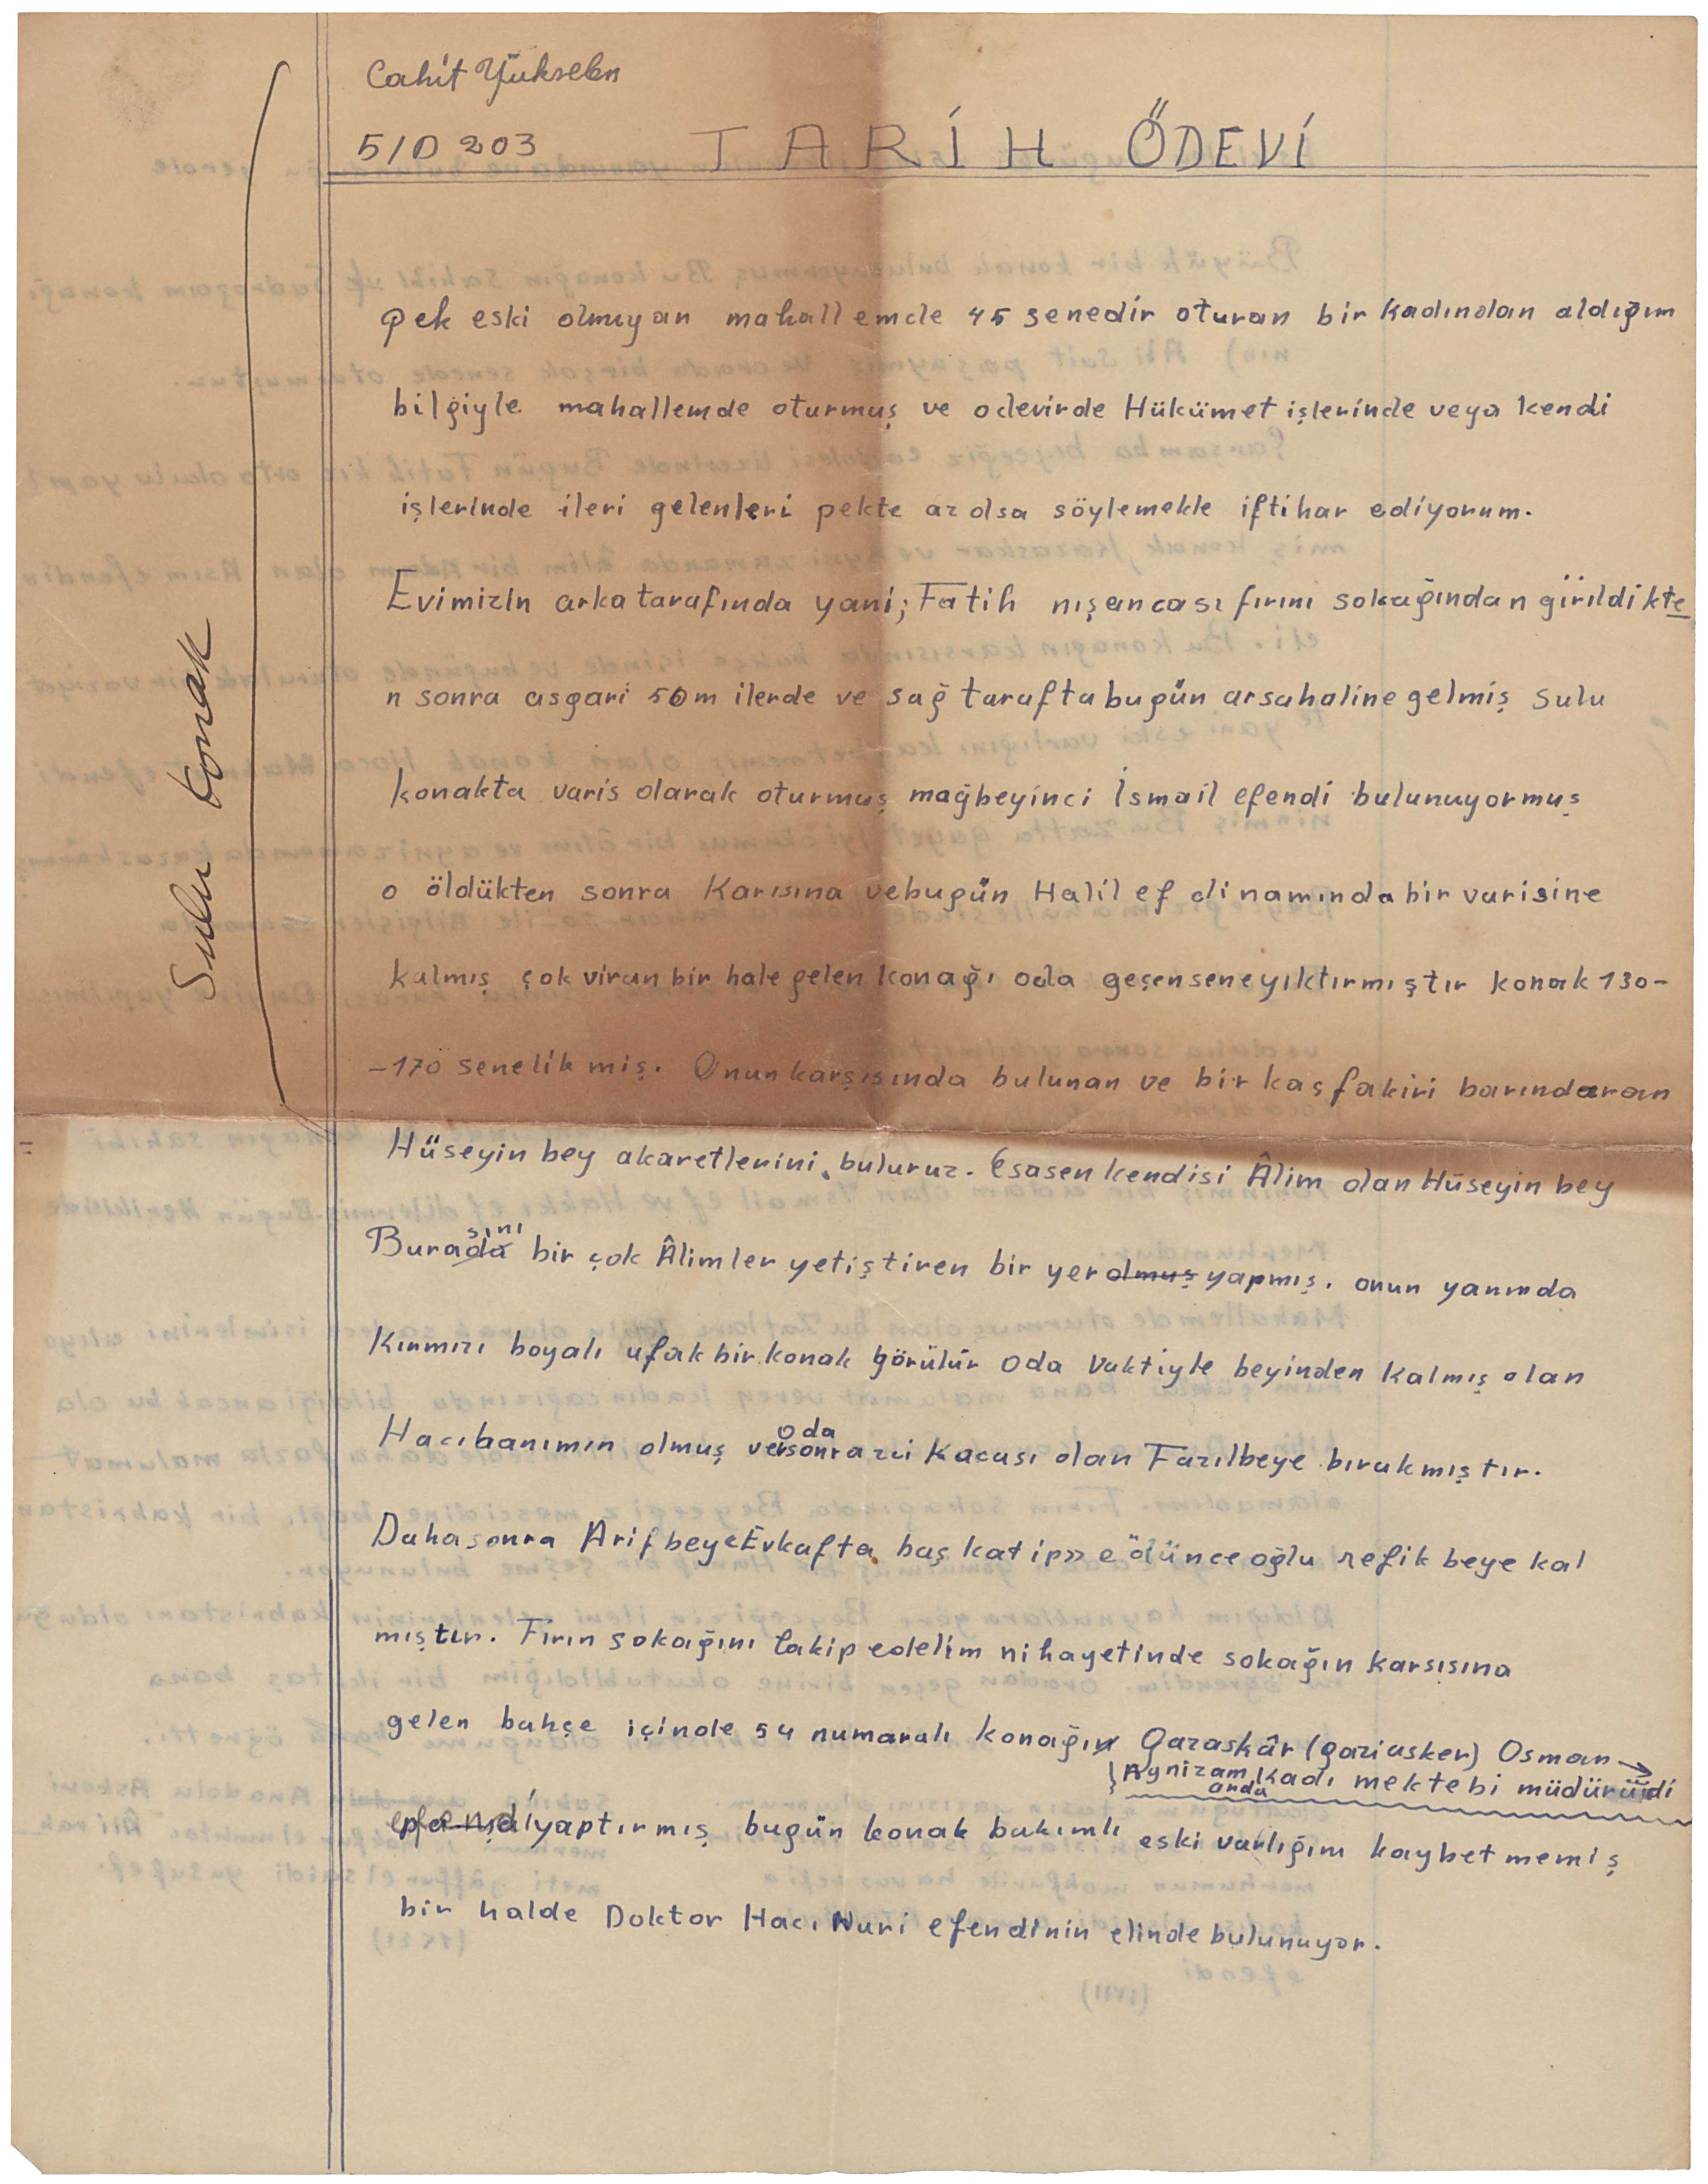 Cahit Yükselen
5/D 203 TARİH ÖDEVİ
Sulu konak
Pek eski olmıyan mahallemde 45 senedir oturan bir kadından aldığım
bilgiyle mahallemde oturmuş ve odevirde Hükümet işlerinde veya kendi
işlerinde ileri gelenleri pekte az olsa söylemekle iftihar ediyorum.
Evimizin arka tarafında yani; Fatih nışancası fırını sokağından girildikte
n sonra asgari 50m ilerde ve sağ tarafta bugün arsa haline gelmiş Sulu
konakta varis olarak oturmuş mağbeyinci İsmail efendi bulunuyormuş
o öldükten sonra Karısına vebugün Halil ef di namında bir varisine
kalmış çok viran bir hale gelen konağı oda geçen sene yıktırmıştır konak 130-
-170 senelik miş. Onun karşısında bulunan ve bir kaş fakiri barındaran
Hüseyin bey akaretlerini buluruz. Esasen kendisi Âlim olan Hüseyin bey
Burada sını bir çok Âlimler yetiştiren bir yer olmuş yapmış. onun yanında
Kırmızı boyalı ufak bir konak görülür oda Vaktiyle beyinden kalmış olan
Hacıhanımın olmuş ve sonra oda Kacası olan Fazılbeye bırakmıştır.
Daha sonra Arif beye Evkafta baş katip» e ödünceoğlu refik beye kal
mıştır. Fırın sokağını takip edelim nihayetinde sokağın karsısına
gelen bahçe içinde 54 numaralı konağın Qazaskâr (gaziasker) Osman →
Aynizamanda Kadı mektebi müdürüidi
efendi yaptırmış bugün konak bakımlı eski varlığını kaybetmemiş
bir halde Doktor Hacı Nuri efendinin elinde bulunuyor.